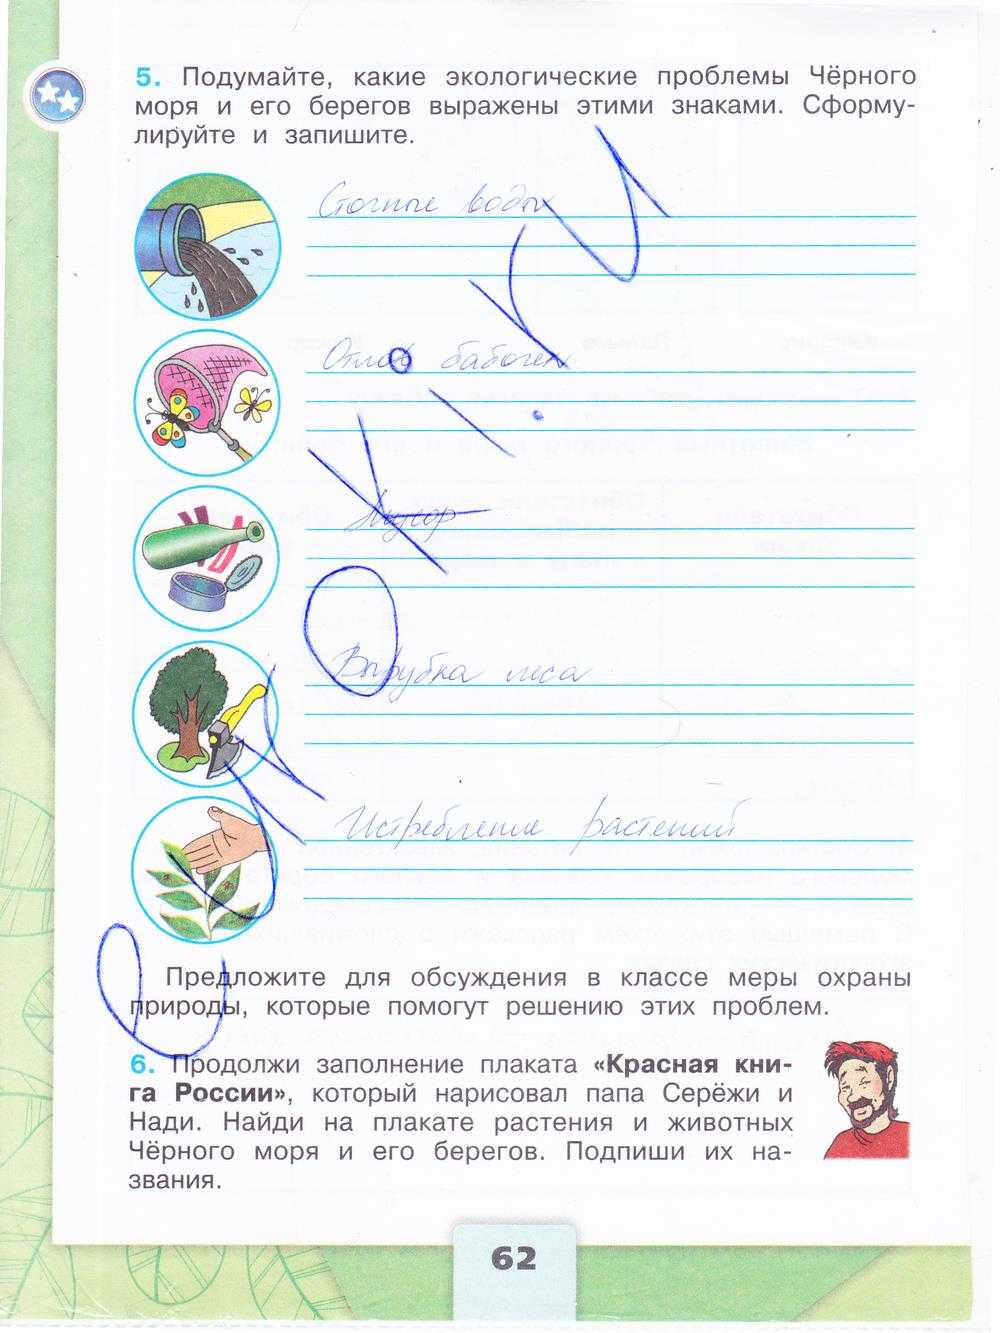 5. Подумайте, какие экологические проблемы Чёрного
моря и его берегов выражены этими знаками. Сформу-
лируйте и запишите.
Сточные воды
Отлов бабочек
Мусор
Вырубка леса
Истребление растений
Предложите для обсуждения в классе меры охраны
природы, которые помогут решению этих проблем.
6. Продолжи заполнение плаката «Красная кни-
га России», который нарисовал папа Серёжи и
Нади. Найди на плакате растения и животных
Чёрного моря и его берегов. Подпиши их на-
звания.
62